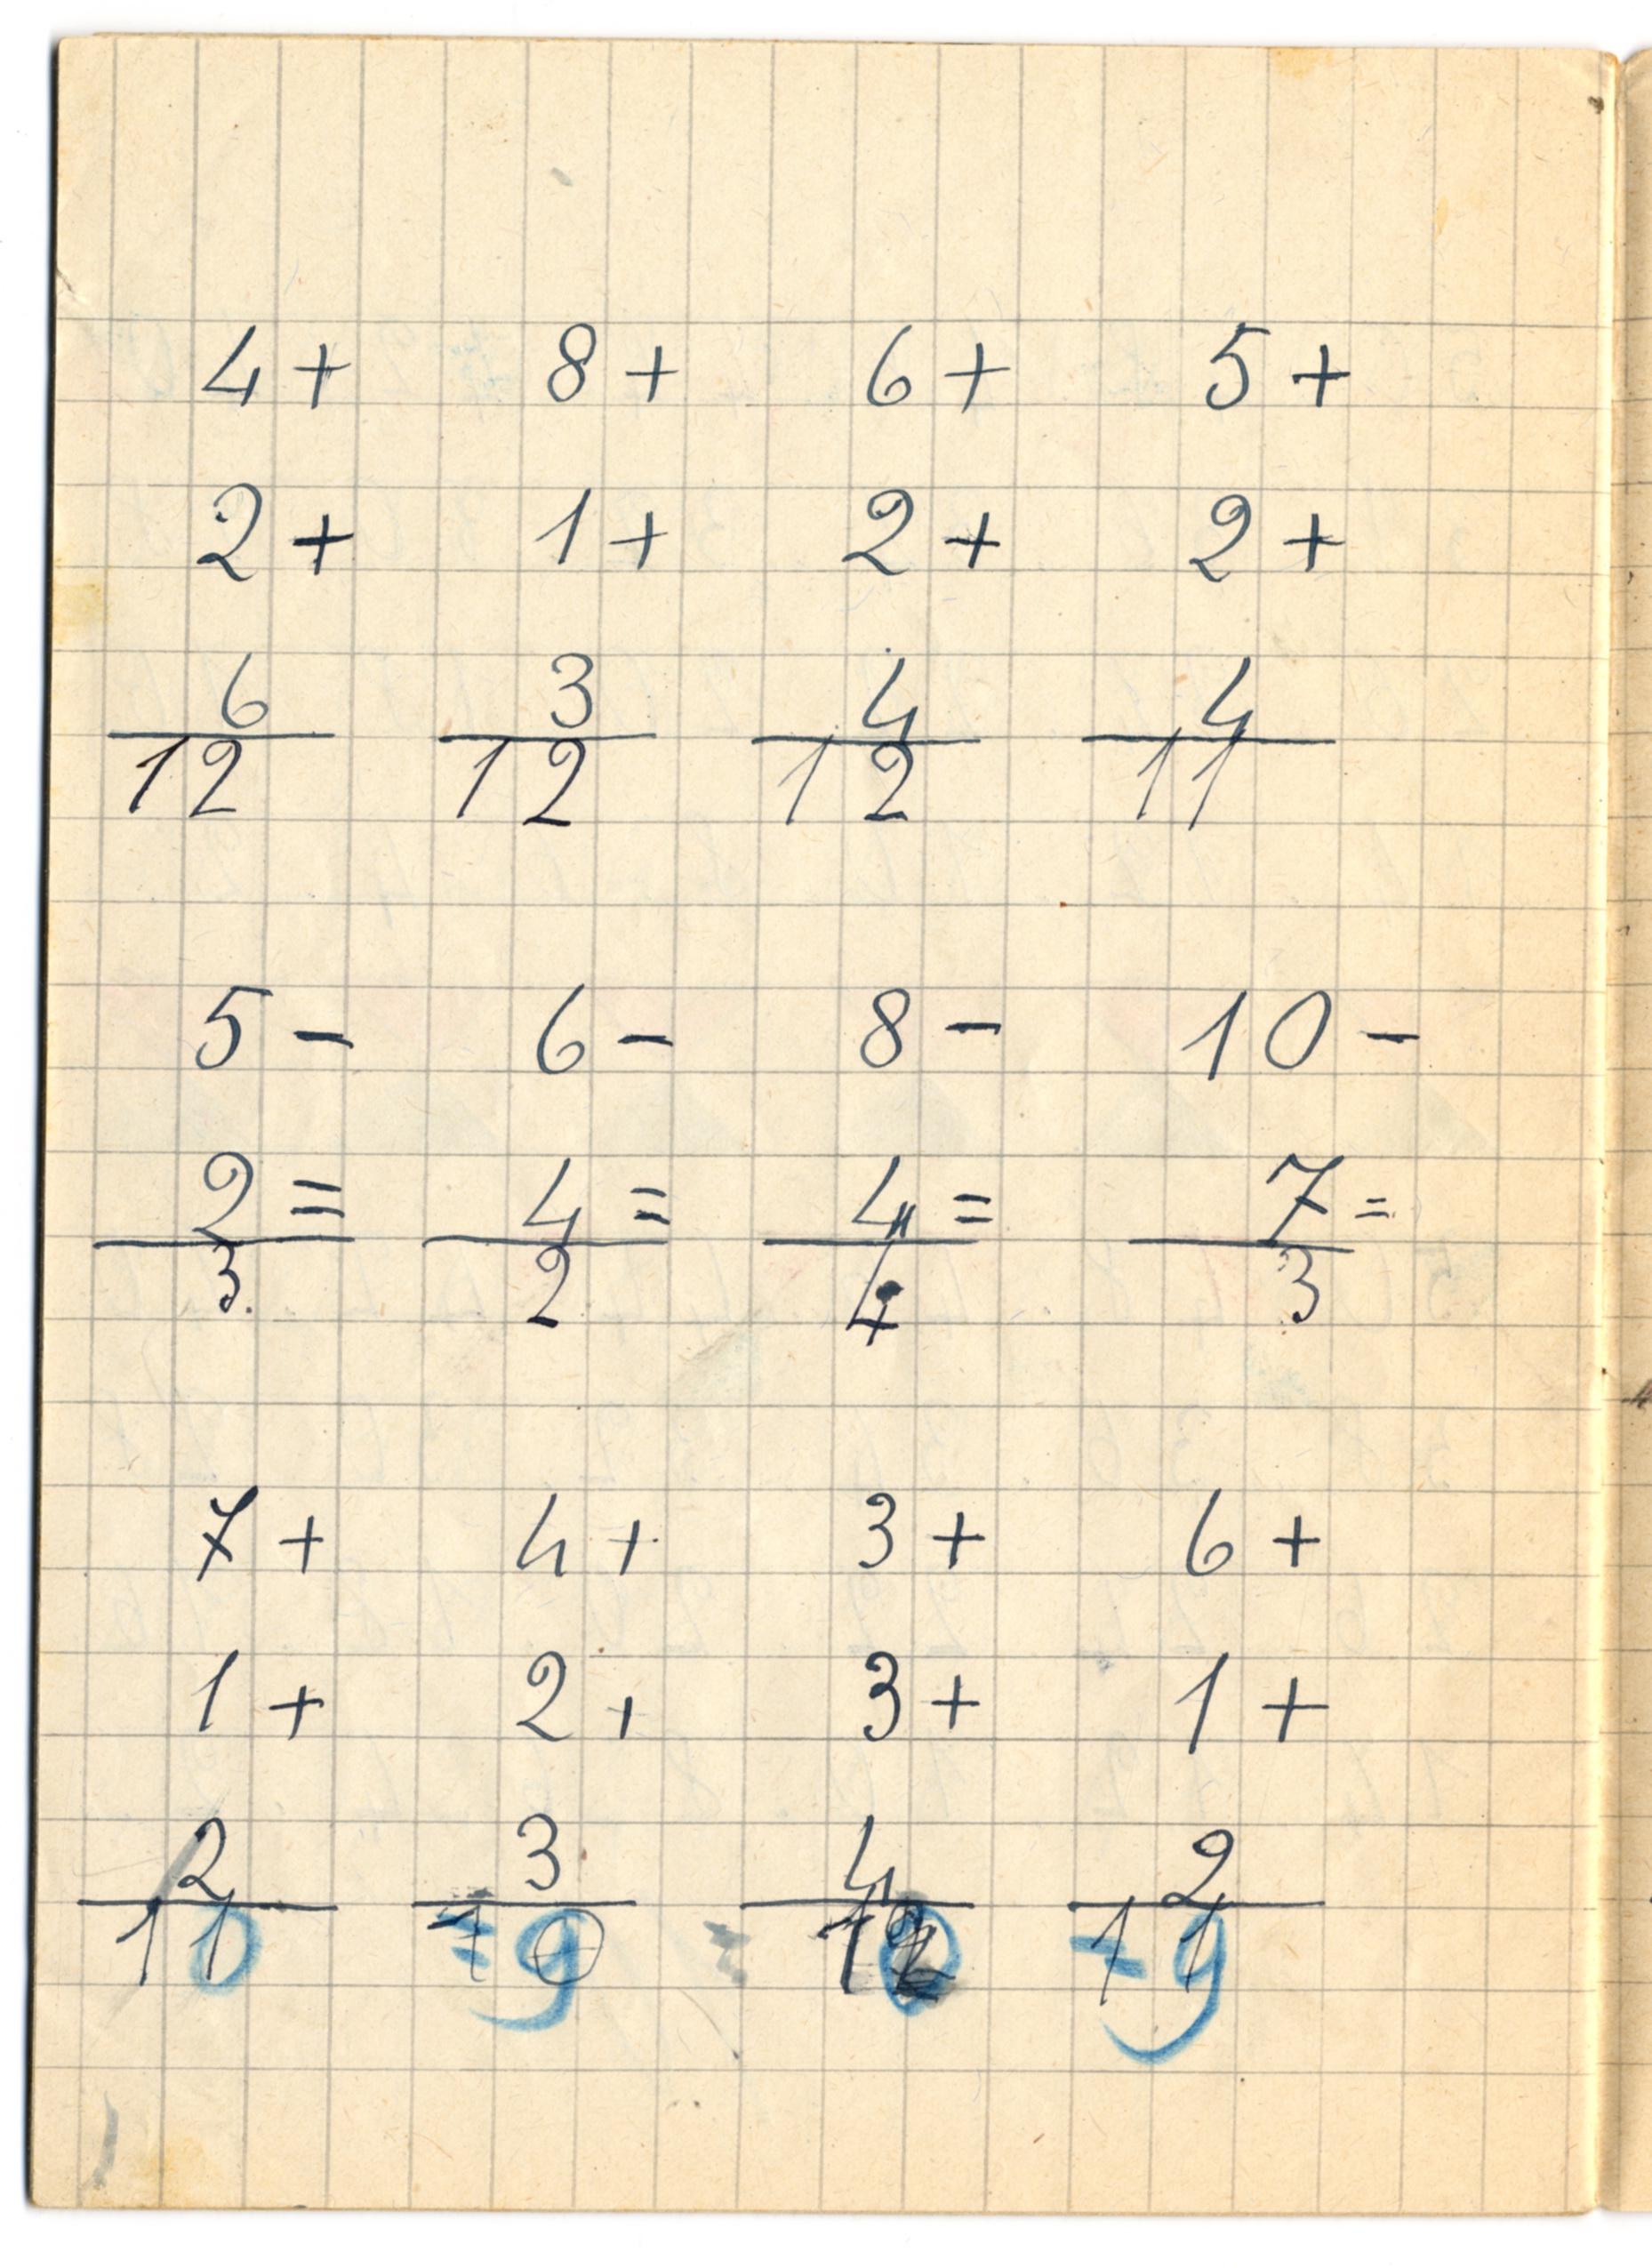 4+ 8+ 6+ 5+
2+ 1+ 2+ 2+
6 3 4 4
12 12 12 11
5- 6- 8- 10-
2= 4= 4= 7=
3 2 4 3
7+ 4+ 3+ 6+
1+ 2+ 3+ 1+
2 3 4 2
11 10 12 11
0 =9 0 =9